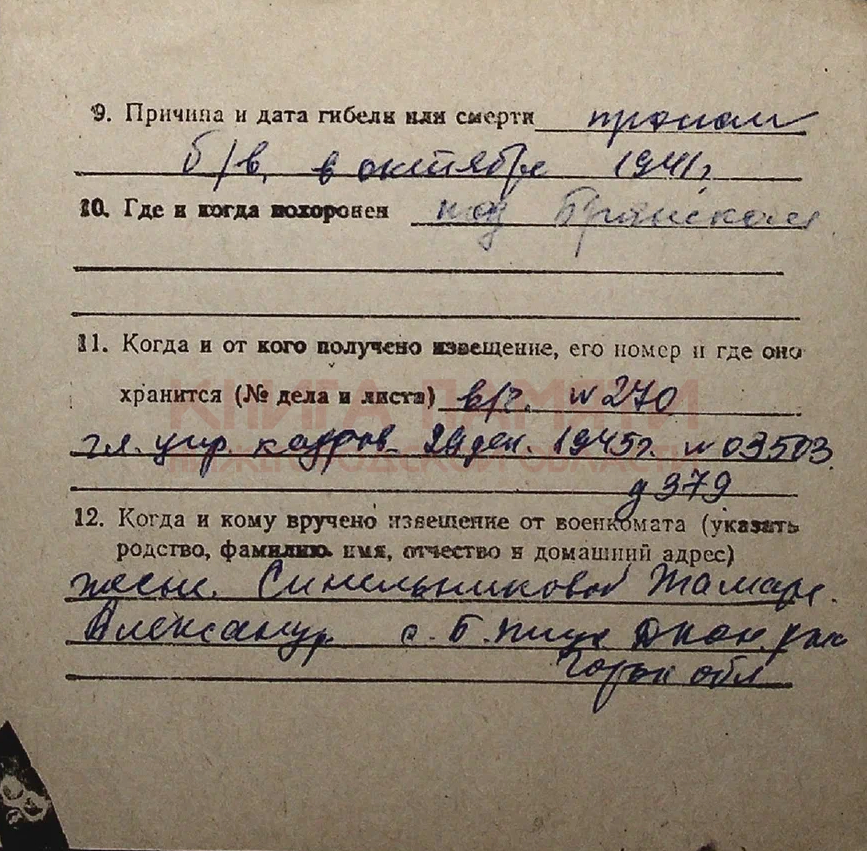 9. Причина и дата гибели или смерти пропал
б/в, в октябре 1941г
10. Где и когда похоронен под Брянском
11. Когда и от кого получено извещение, его номер и где оно
хранится (№ дела и листа) в/г. N 270
КНИГА ПАМЯТИ
гл. упр. кадров 29 дек. 1945г. N 03503
НИЖЕГОРОДСКОЙ ОБЛАСТИ
д 379
12. Когда и кому вручено извещение от военкомата (указать
родство, фамилию, имя, отчество и домашний адрес)
жене. Синельниковой Тамаре.
Александр. с. Б. Пица Дкон. рай
Горьк обл